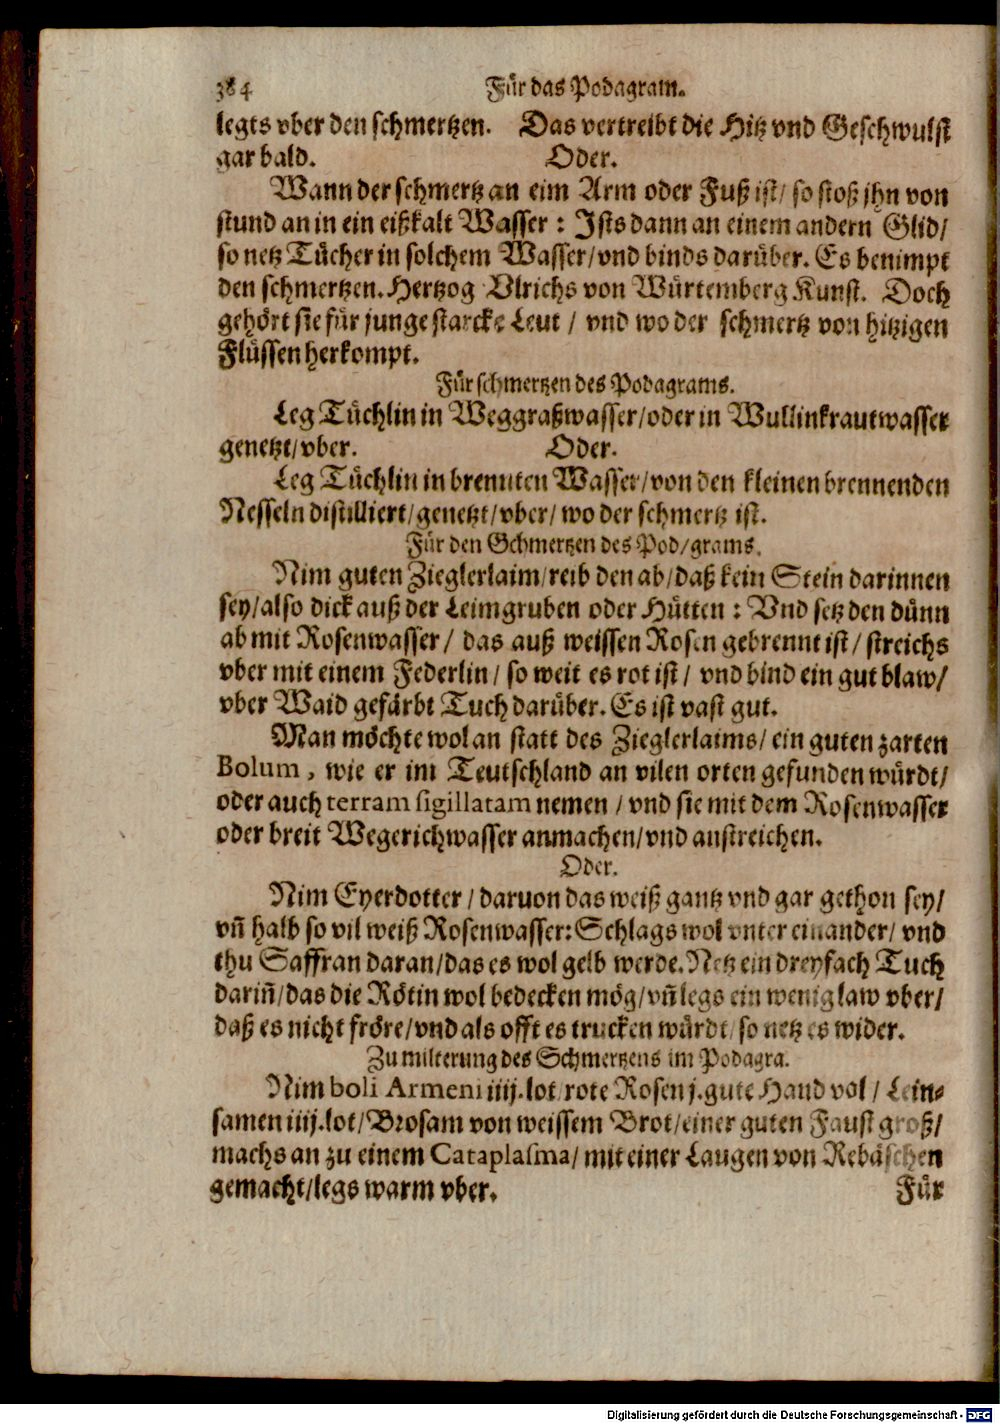 384 Für das Podagram.
legts vber den schmertzen. Das vertreibt die Hitz vnd Geschwulst
gar bald. Oder.
Wann der schmertz an eim Arm oder Fuß ist/ so stoß jhn von
stund an in ein eißkalt Wasser: Ists dann an einem andern Glid/
so netz Tücher in solchem Wasser/vnd binds darüber. Es benimpt
den schmertzen. Hertzog Vlrichs von Würtemberg Kunst. Doch
gehört sie für junge starcke Leut / vnd wo der schmertz von hitzigen
Flüssen herkompt.
Für schmertzen des Podagrams.
Leg Tüchlin in Weggraßwasser/oder in Wullinkrautwasser
genetzt/vber. Oder.
Leg Tüchlin in brennten Wasser/von den kleinen brennenden
Nesseln distilliert/genetzt/vber/ wo der schmertz ist.
Für den Schmertzen des Pod/grams.
Nim guten Zieglerlaim/reib den ab/daß kein Stein darinnen
sey/also dick auß der Leimgruben oder Hütten: Vnd setz den dünn
ab mit Rosenwasser/ das auß weissen Rosen gebrennt ist/ streichs
vber mit einem Federlin/ so weit es rot ist/ vnd bind ein gut blaw/
vber Waid gefärbt Tuch darüber. Es ist vast gut.
Man möchte wol an statt des Zieglerlaims/ ein guten zarten
Bolum, wie er im Teutschland an vilen orten gefunden würdt/
oder auch terram sigillatam nemen / vnd sie mit dem Rosenwasser
oder breit Wegerichwasser anmachen/vnd anstreichen.
Oder.
Nim Eyerdotter / daruon das weiß gantz vnd gar gethon sey/
vñ halb so vil weiß Rosenwasser: Schlags wol vnter einander/ vnd
thu Saffran daran/das es wol gelb werde. Netz ein dreyfach Tuch
dariñ/das die Rötin wol bedecken mög/vñ legs ein wenig law vber/
daß es nicht fröre/vnd als offt es trucken würdt/ so netz es wider.
Zu milterung des Schmertzens im Podagra.
Nim boli Armeni iiij. lot/rote Rosen j. gute Hand vol / Lein-
samen iiij. lot/Brosam von weissem Brot/einer guten Faust groß/
machs an zu einem Cataplasma/ mit einer Laugen von Rebäschen
gemacht/legs warm vber. Für
Digitalisierung gefördert durch die Deutsche Forschungsgemeinschaft - DFG